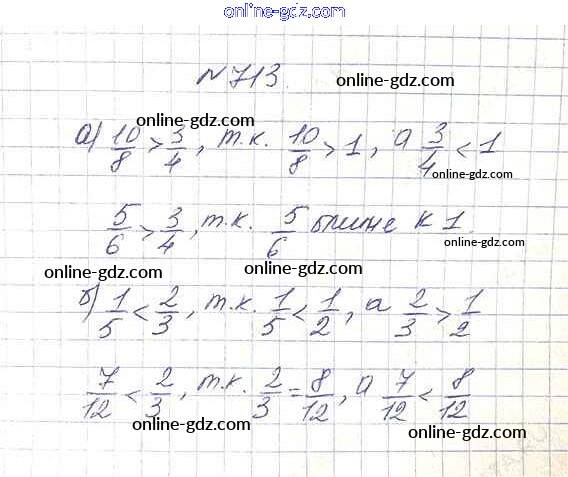 online-gdz.com
№713. online-gdz.com
online-gdz.com
а) 10/8 > 3/4, т.к. 10/8 > 1, а 3/4 < 1
online-gdz.com
5/6 > 3/4, т.к. 5/6 ближе к 1.
online-gdz.com
online-gdz.com online-gdz.com
б) 1/5 < 2/3, т.к. 1/5 < 1/2, а 2/3 > 1/2
online-gdz.com online-gdz.com
7/12 < 2/3, т.к. 2/3 = 8/12, а 7/12 < 8/12
online-gdz.com online-gdz.com
online-gdz.com